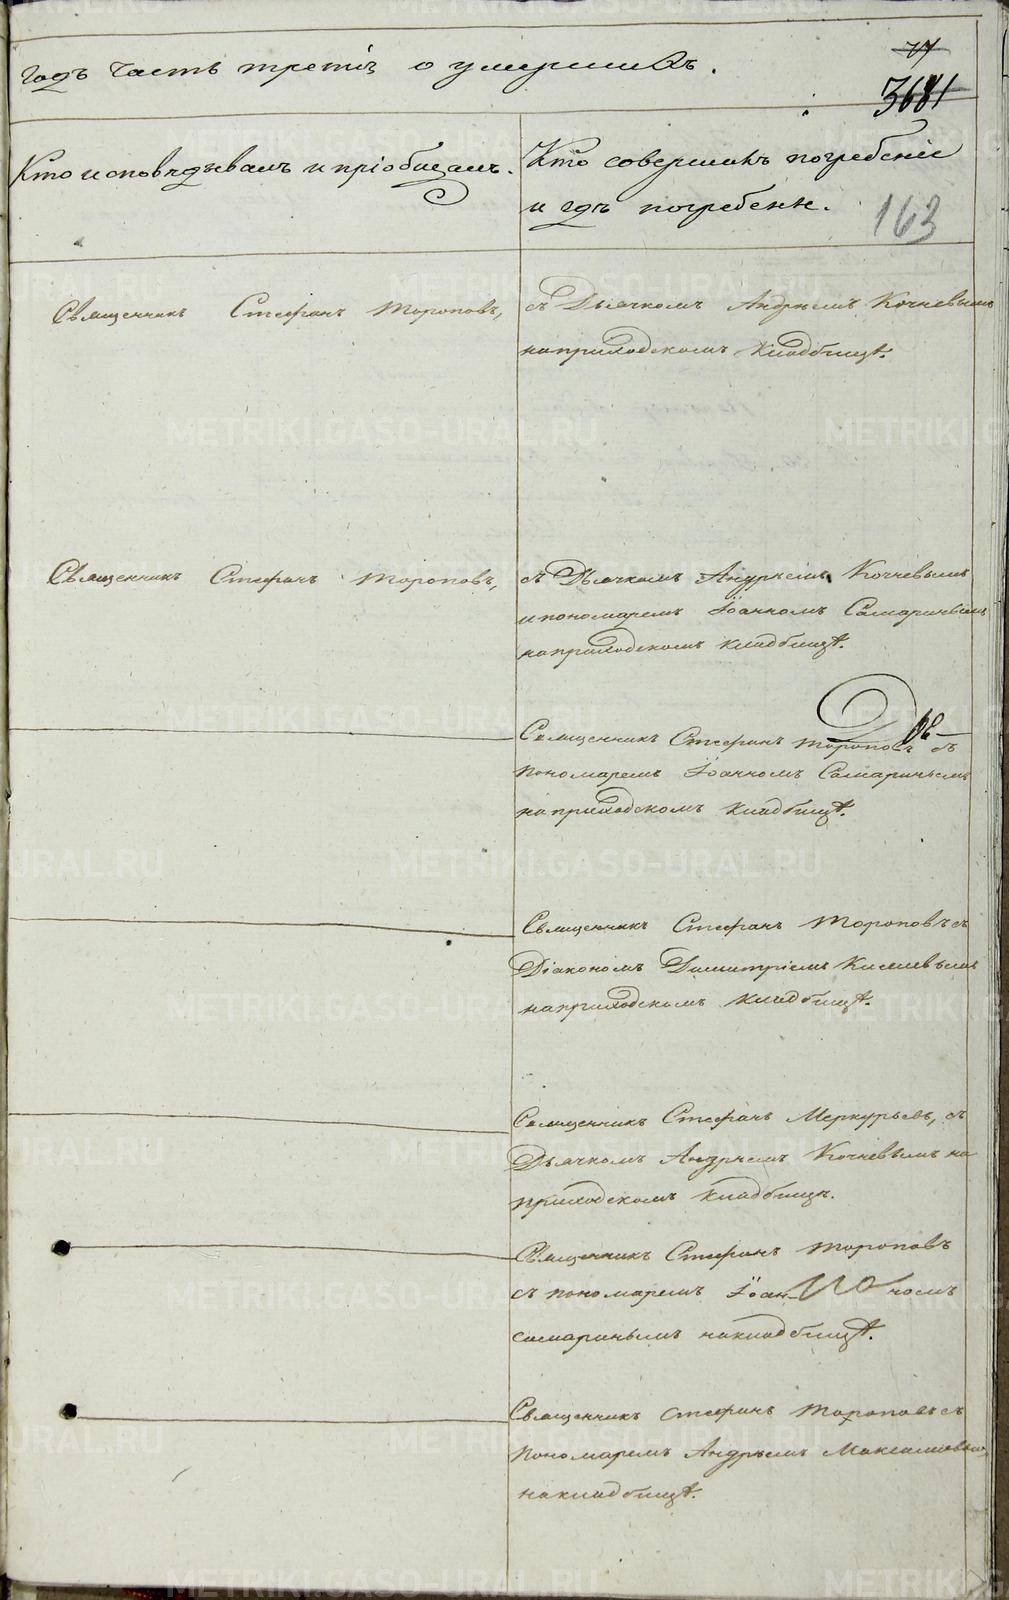 годъ часть третія о умершихъ.
77
3681
Кто исповѣдывалъ и пріобщалъ.
Кто совершилъ погребеніе
и гдѣ погребены.
163
Священникъ Стефанъ Тороповъ,
съ Дьячкомъ Андреемъ Кочневымъ
на приходскомъ кладбищѣ.
Священникъ Стефанъ Тороповъ,
съ Дьячкомъ Андреемъ Кочневымъ
и пономаремъ Іоанномъ Самаринымъ
на приходскомъ кладбищѣ.
Священникъ Стефанъ Тороповъ съ
пономаремъ Іоанномъ Самаринымъ
на приходскомъ кладбищѣ.
Священникъ Стефанъ Тороповъ съ
Діакономъ Димитріемъ Киселевымъ
на приходскомъ кладбищѣ.
Священникъ Стефанъ Меркурьевъ, съ
Дьячкомъ Андреемъ Кочневымъ на
приходскомъ кладбищѣ.
Священникъ Стефанъ Тороповъ
съ пономаремъ Іоанномъ
самаринымъ на кладбищѣ.
Священникъ Стефанъ Тороповъ съ
пономаремъ Андреемъ
на кладбищѣ.
METRIKI.GASO-URAL.RU